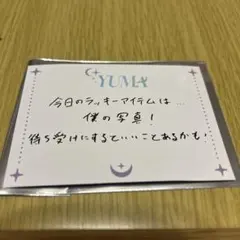 YUMA
今日のラッキーアイテムは…
僕の写真!
待ち受けにするといいことあるかも!